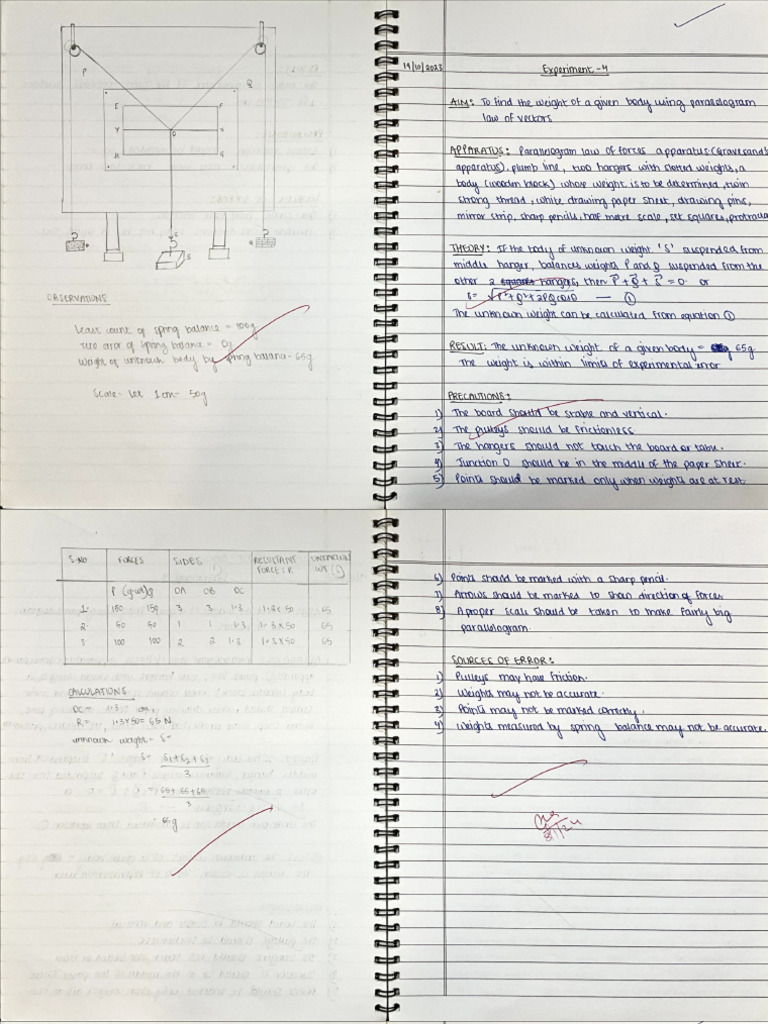 P
Q
E
F
Y
O
X
H
G
S
S
OBSERVATIONS
Least count of spring balance = 100g
Zero error of spring balance = 0g
Weight of unknown body by spring balance = 65g
Scale- Let 1cm= 50g
19/10/2023
Experiment -4
AIM: To find the weight of a given body using parallelogram
law of vectors
APPARATUS: Parallelogram law of forces apparatus (Gravesand's
apparatus), plumb line, two hangers with slotted weights, a
body (wooden block) whose weight is to be determined, twin
strong thread, white drawing paper sheet, drawing pins,
mirror strip, sharp pencils, half metre scale, set squares, protractor
THEORY: If the body of unknown weight 'S' suspended from
middle hanger, balances weights P and Q suspended from the
other 2 hangers, then P + Q + S = 0 or
S= √P²+Q²+2PQcosθ — ①
The unknown weight can be calculated from equation ①
RESULT: The unknown weight of a given body = 65g
The weight is within limits of experimental error
PRECAUTIONS:
1) The board should be stable and vertical.
2) The pulleys should be frictionless
3) The hangers should not touch the board or table.
4) Junction O should be in the middle of the paper sheet.
5) Points should be marked only when weights are at rest.
S.NO FORCES SIDES RESULTANT FORCE: R UNKNOWN WT (S)
P (gwt) Q OA OB OC
1. 150 150 3 3 1.3 1.3×50 65
2. 50 50 1 1 1.3 1.3×50 65
3. 100 100 2 2 1.3 1.3×50 65
CALCULATIONS
OC= 1.3 cm
R= 1.3×50= 65 N
unknown weight = S=
S= S1+S2+S3
3
= 65+65+65
3
= 65g
6) Points should be marked with a sharp pencil.
7) Arrows should be marked to show direction of forces
8) A proper scale should be taken to make fairly big
parallelogram.
SOURCES OF ERROR:
1) Pulleys may have friction.
2) Weights may not be accurate.
3) Points may not be marked correctly.
4) Weights measured by spring balance may not be accurate.